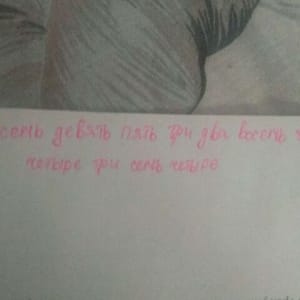 семь девять пять три два восемь
четыре три семь четыре